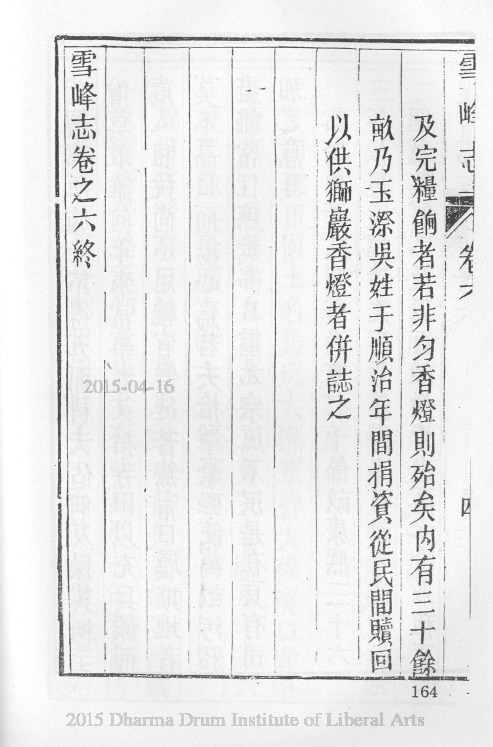 雪峰志
卷六
四
及完糧餉者若非勻香燈則殆矣內有三十餘
畝乃玉溪吳姓于順治年間捐資從民間贖回
以供獅巖香燈者併誌之
雪峰志卷之六終
2015-04-16
164
2015 Dharma Drum Institute of Liberal Arts